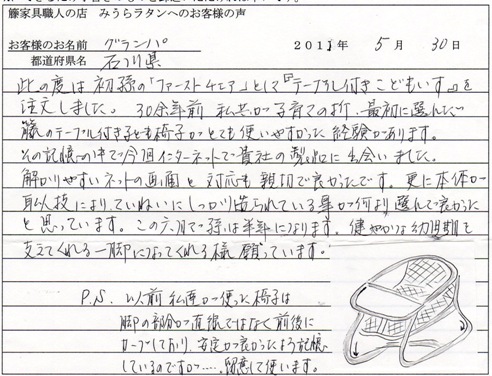 籐家具職人の店　みうらラタンへのお客様の声
お客様のお名前　グランパ　2011年　5月　30日
都道府県名　石川県
此の度は初孫の「ファーストチェア」として『テーブル付きこどもいす』を
注文しました。30余年前　私共が子育ての折、最初に選んだ
籐のテーブル付き子ども椅子がとても使いやすかった経験があります。
その記憶の中で今回インターネットで貴社の製品に出会いました。
解かりやすいネットの画面と対応も親切で良かったです。更に本体が
職人技によりていねいにしっかり造られている事が何より選んで良かった
と思っています。この六月で孫は半年になります。健やかな幼児期を
支えてくれる一脚になってくれる様願っています。
P.S. 以前私共が使った椅子は
脚の部分が直線ではなく前後に
カーブしており、安定が良かったよう記憶
しているのですが……留意して使います。